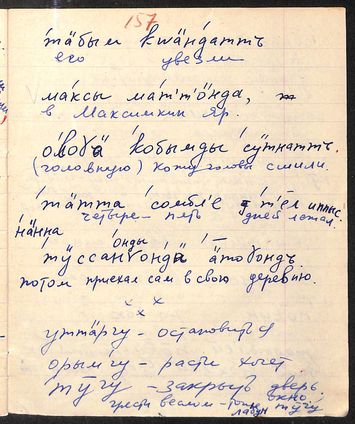 157
тӓбым квӓндатть
его увезли
ма́ксы ма́т'т'ӧнда,
в Максимкин Яр.
о́ловӫ ко́бымды сӱтнатть.
(головную) кожу головы сшили.
тӓтта со́мбл'е т'е̄л иппыс.
четыре-пять дней лежал.
нӓнна онды
тӱссан э̄тоɣондъ
потом приехал сам в свою деревню.
× × ×
уттӓргу - остановиться
орымгу - расти хочет
тӱгу - закрыть дверь
окно
грести веслом - тӱгу